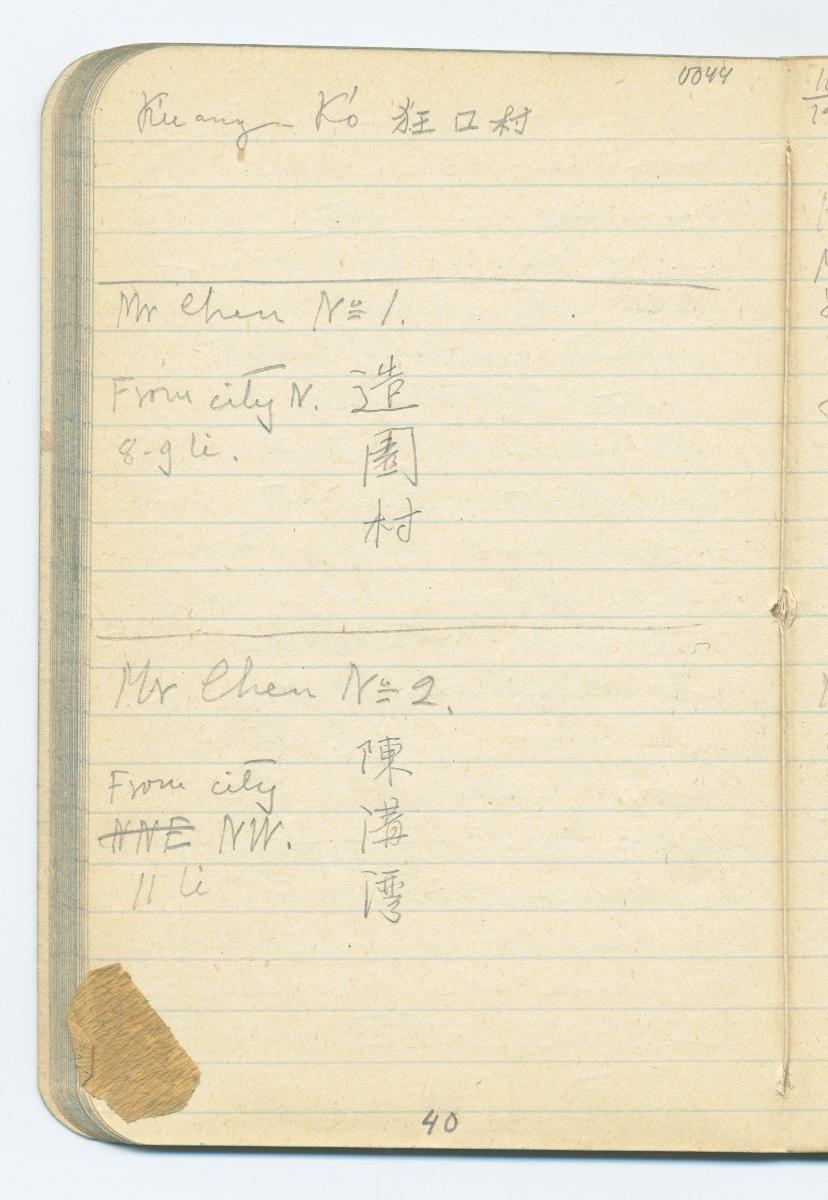 0044
Kuang-K'o 狂口村
Mr Chen No 1.
From city N. 造
8-9 li. 園
村
Mr Chen No 2.
陳
From city
溝
NNE NW.
11 li 灣
40